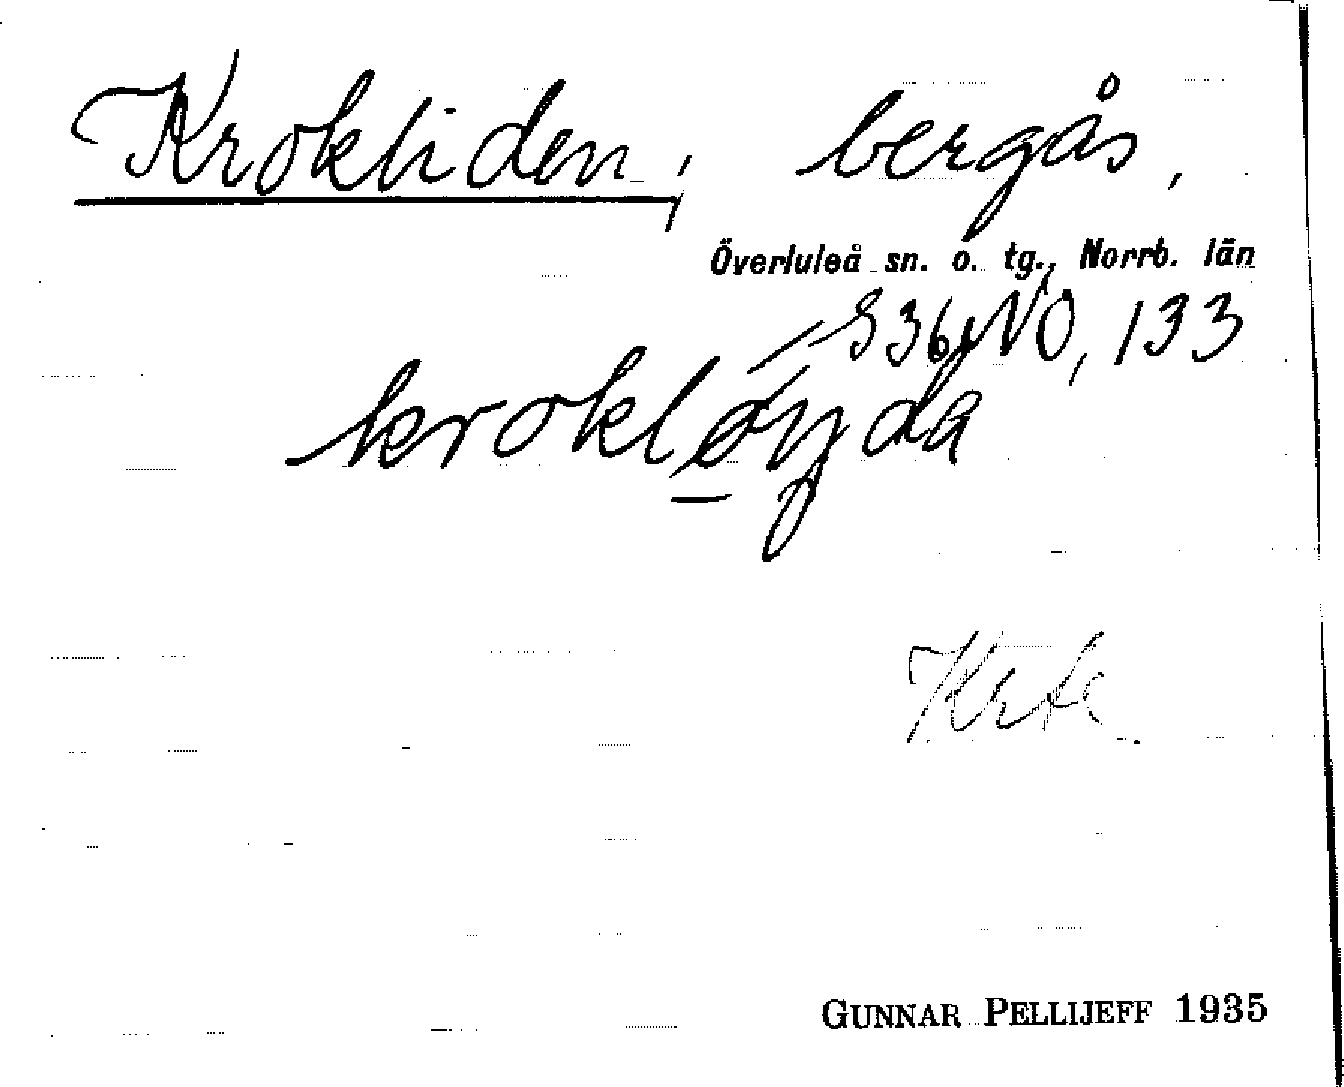 Krokliden; bergås,
Överluleå sn. o. tg., Norrb. län
S36NO, 133
krokløyda
Krta
GUNNAR PELLIJEFF 1935